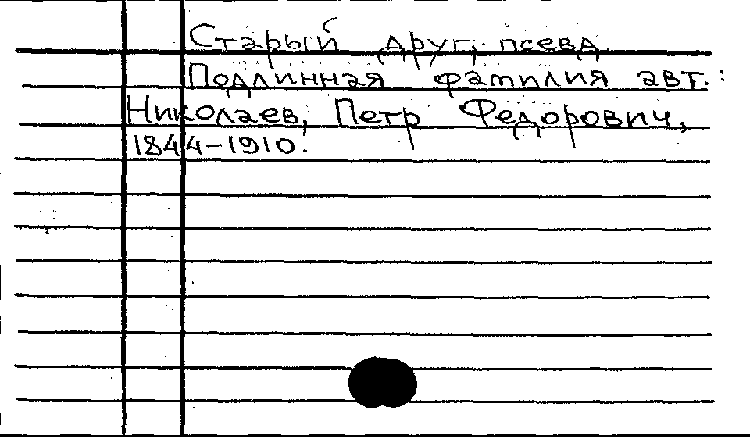 Старый друг, псевд.
Подлинная фамилия авт.:
Николаев, Петр Федорович,
1844-1910.